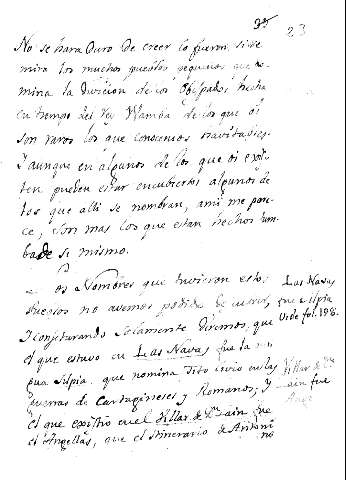 35
23
No se hara duro de creer lo fueron, si se
mira los muchos pueblos pequenos que no-
mina la Divicion de los Obispados, hecha
en tiempo del Rey Wamba de los que oi
son raros los que conocemos
Y aunque en algunos de los que oi exis-
ten pueden estar encubiertos algunos de
los que alli se nombran, ami me pare-
ce, son mas los que estan hechos tum-
ba de si mismo.
Los Nombres que tuvieron estos
no avemos podido
Y conjeturando solamente diremos, que
el que estuvo en Las Navas fue la
Silpia que nomina Tito Livio en las
guerras de Cartagineses y Romanos; y
el que existio en el Villar de Dn Lain fue
el Angellas, que el Itinerario de Antoni
no
Las Navas
fue Silpia
Vide fol. 198.
Villar de Dn
Lain fue
Ange